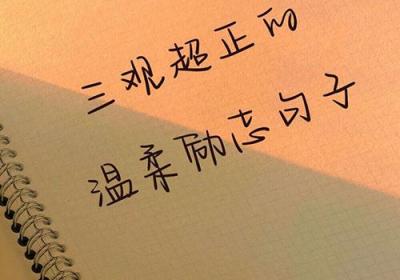 三观超正的
温柔励志句子